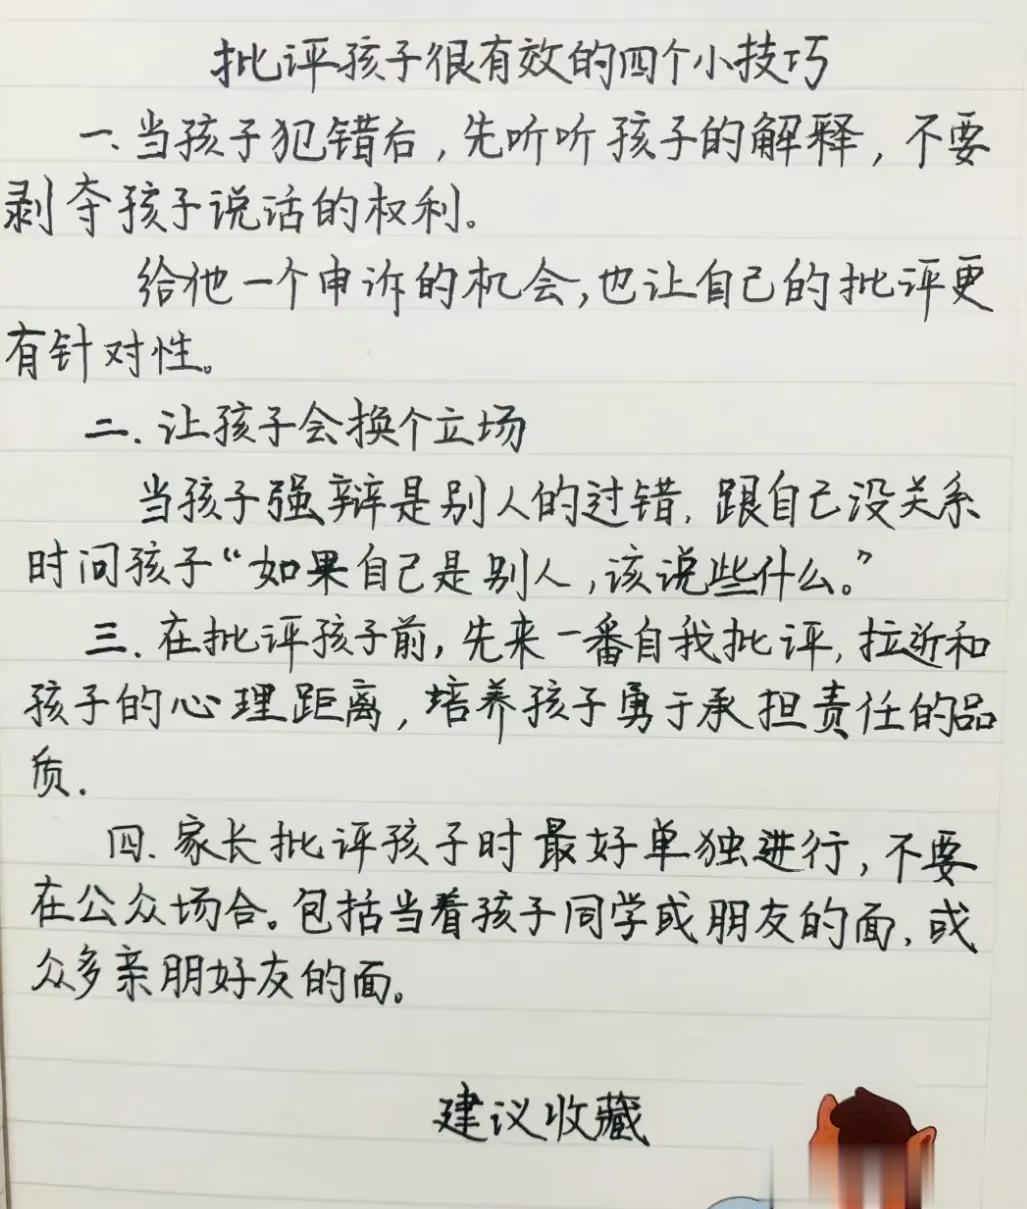 批评孩子很有效的四个小技巧
一.当孩子犯错后,先听听孩子的解释,不要
剥夺孩子说话的权利。
给他一个申诉的机会,也让自己的批评更
有针对性。
二.让孩子会换个立场
当孩子强辩是别人的过错,跟自己没关系
时问孩子“如果自己是别人,该说些什么。”
三.在批评孩子前,先来一番自我批评,拉近和
孩子的心理距离,培养孩子勇于承担责任的品
质.
四.家长批评孩子时最好单独进行,不要
在公众场合。包括当着孩子同学或朋友的面,或
众多亲朋好友的面。
建议收藏